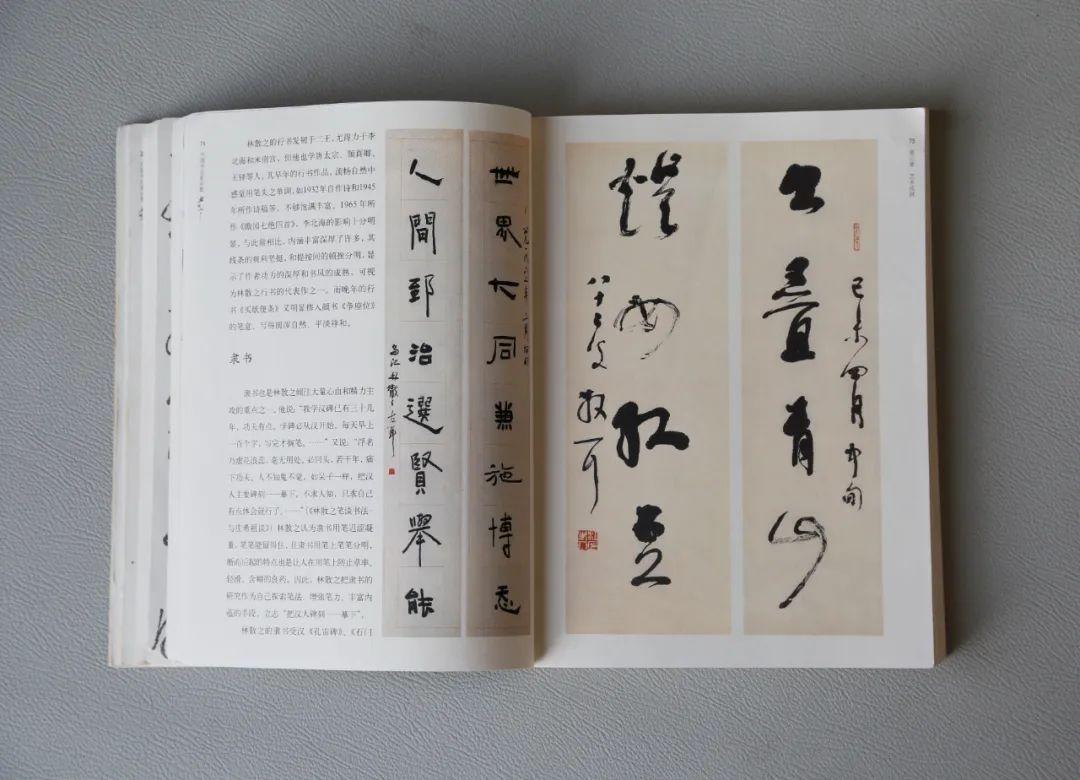 74
林散之的行书发轫于二王,尤得力于李
北海和米南宫,但他也学唐太宗、颜真卿、
王铎等人。其早年的行书作品,流畅自然中
感觉用笔失之单调,如1932年自作诗和1945
年所作诗稿等,不够饱满丰富。1965年所
七绝四首》,李北海的影响十分明
显,与此前相比,内涵丰富深厚了许多,其
线条的爽利坚挺,和提按间的顿挫分明,显
示了作者功力的深厚和书风的成熟,可视
为林散之行书的代表作之一。而晚年的行
书《买纸便条》又明显掺入颜书《争座位》
的笔意,写得圆浑自然、平淡祥和。
隶书
隶书也是林散之倾注大量心血和精力主
攻的重点之一。他说:“我学汉碑已有三十几
年,功夫有点。学碑必从汉开始。每天早上
一百个字,写完才搁笔。……”又说:“浮名
乃虚花浪蕊,毫无用处。必回头,若干年,痛
下功夫。人不知鬼不觉,如呆子一样,把汉
人主要碑刻一一摹下。不求人知,只求自己
有点体会就行了。……”(《林散之笔谈书法·
与庄希祖谈》)林散之认为隶书用笔迟涩凝
重,笔笔能留得住,且隶书用笔上笔笔分明、
的特点也是让人在用笔上防止草率、
轻滑、含糊的良药。因此,林散之把隶书的
研究作为自己探索笔法、增强笔力、丰富内
蕴的手段,立志“把汉人碑刻一一摹下”。
林散之的隶书受汉《孔宙碑》、《石门
世界大同兼施博㤅
人間郅治選賢舉能
烏江林散之左筆
75
第三章 艺术成就
书疊青山
己未四月中旬
燈如紅豆
八十二叟散耳